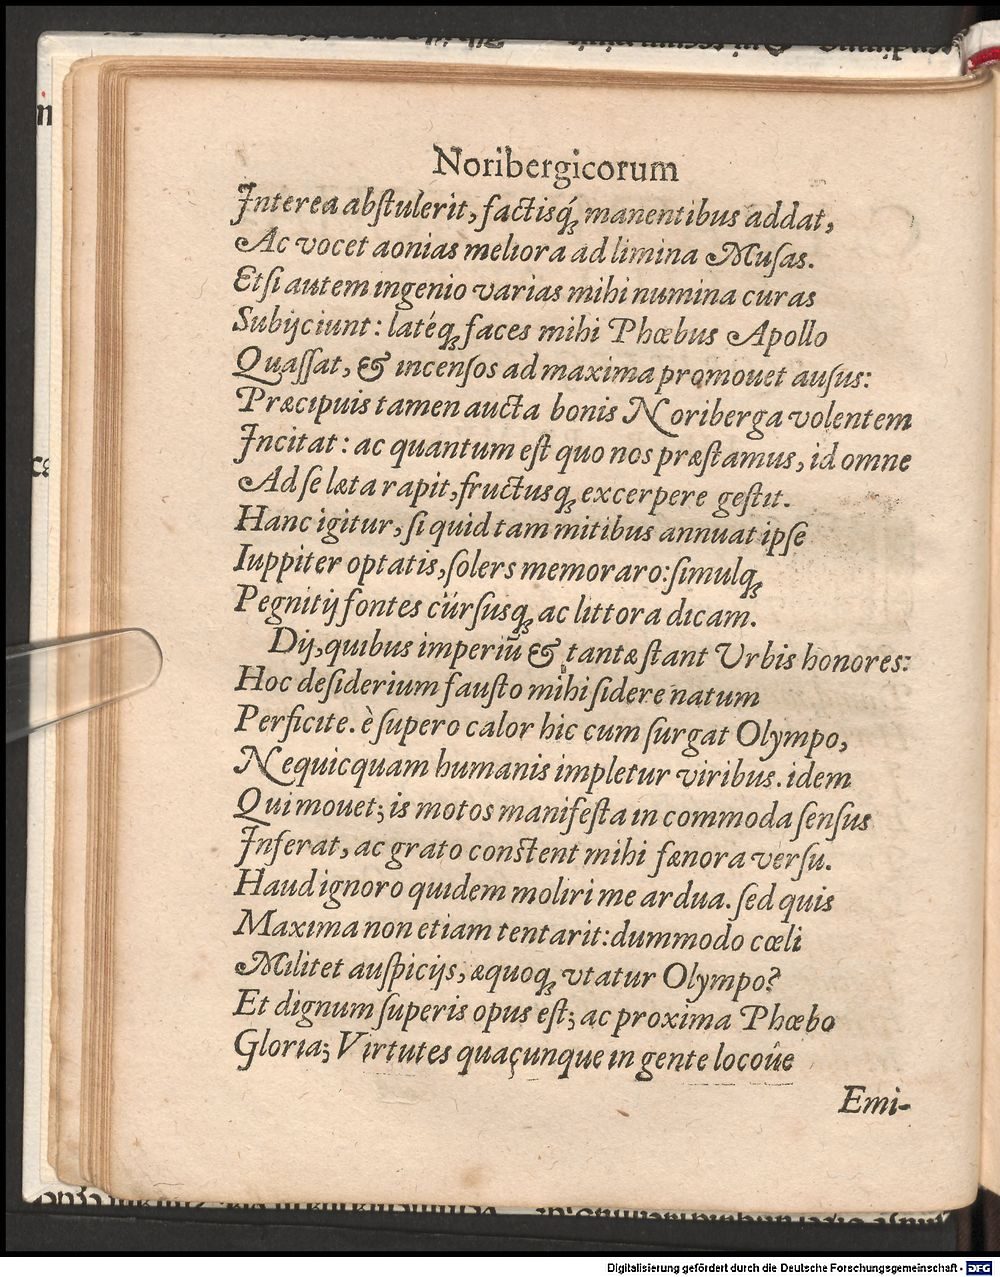 Noribergicorum
Interea abſtulerit, factisq́ꝫ manentibus addat,
Ac vocet aonias meliora ad limina Muſas.
Etſi autem ingenio varias mihi numina curas
Subijciunt: latéqꝫ faces mihi Phœbus Apollo
Quaſſat, & incenſos ad maxima promouet auſus:
Præcipuis tamen aucta bonis Noriberga volentem
Incitat: ac quantum eſt quo nos præſtamus, id omne
Ad ſe læta rapit, fructusqꝫ excerpere geſtit.
Hanc igitur, ſi quid tam mitibus annuat ipſe
Iuppiter optatis, ſolers memoraro: ſimulqꝫ
Pegnitij fontes cürſusqꝫ ac littora dicam.
Dij, quibus imperiũ & tantæ ſtant Vrbis honores:
Hoc deſiderium fauſto mihi ſidere natum
Perficite. è ſupero calor hic cum ſurgat Olympo,
Nequicquam humanis impletur viribus. idem
Qui mouet; is motos manifeſta in commoda ſenſus
Inferat, ac grato conſtent mihi fænora verſu.
Haud ignoro quidem moliri me ardua. ſed quis
Maxima non etiam tentarit: dummodo cœli
Militet auſpicijs, æquoqꝫ vtatur Olympo?
Et dignum ſuperis opus eſt; ac proxima Phœbo
Gloria; Virtutes quaçunque in gente locoûe
Emi-